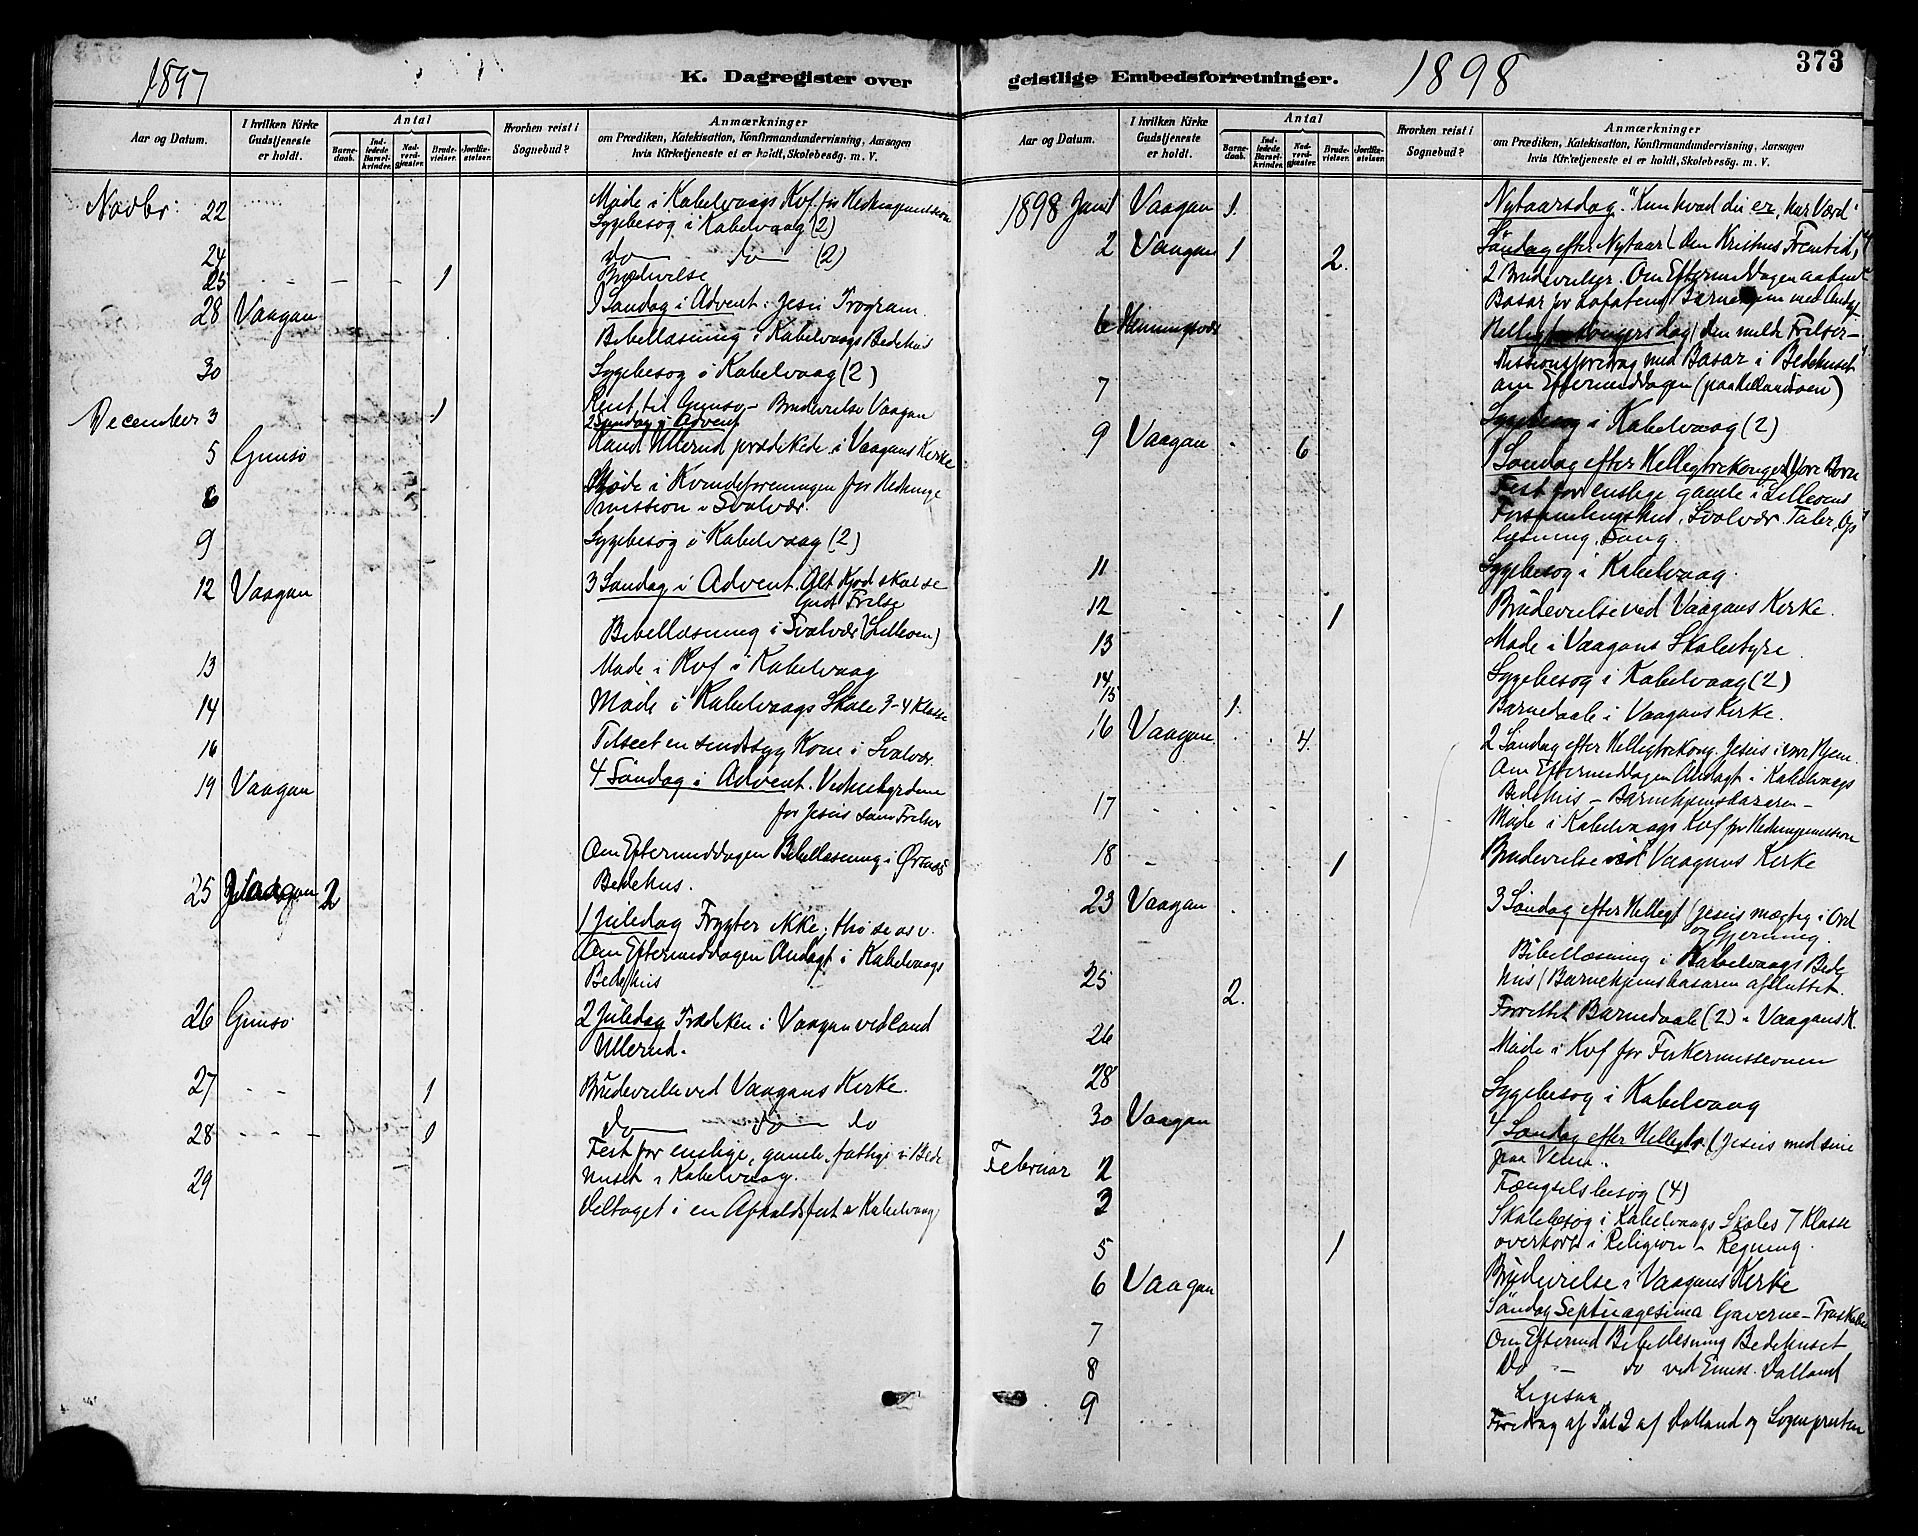 1897
K. Dagregister over
Aar og Datum.
I hvilken Kirke Gudstjeneste er holdt.
Antal
Barnedaab.
Indledede Barselkvinder.
Nadverdgjæster.
Brudevielser.
Jordfæstelser.
Hvorhen reist i Sognebud?
Anmærkninger
om Prædiken, Katekisation, Konfirmandundervisning, Aarsagen
hvis Kirketjeneste ei er holdt, Skolebesög. m. V.
Novbr: 22 Møde i Kabelvaags Kvf. for Hedningemission
Sygebesøg i Kabelvaag (2)
24 do do (2)
25 1 Brudevielse
28 Vaagan 1 Søndag i Advent. Jesu Program.
Bibellæsning i Kabelvaags Bedehus
30 Sygebesøg i Kabelvaag (2)
December 3 1 Reist til Gimsø – Brudevielse Vaagan
2 Søndag i Advent
5 Gimsø Kand Ullerud prædikede i Vaagans Kirke
6 Møde i Kvindeforeningen for Hedninge
mission i Svolvær.
9 Sygebesøg i Kabelvaag (2)
12 Vaagan 3 Søndag i Advent. Alt Kjød skal se
Guds Frelse
Bibellæsning i Svolvær (Lilleøen)
13 Møde i Kvf i Kabelvaag
14 Møde i Kabelvaags Skole 3-4 Klasse
16 Tilseet en sindssyg Kone i Svolvær.
19 Vaagan 4 Søndag i Advent. Vidnesbyrdene
for Jesus som Frelser
Om Eftermiddagen Bibellæsning i Ørsnes
Bedehus.
25 Vaagan 2
1 Juledag Frygter ikke; thi se o s v.
Om Eftermiddagen Andagt i Kabelvaags
Bedehus
26 Gimsø 2 Juledag Prædiken i Vaagan ved Cand
Ullerud.
27 1 Brudevielse ved Vaagans Kirke.
28 1 do do do
Fest for enslige, gamle, fattige i Bede
huset i Kabelvaag.
29 Deltaget i en Afholdsfest i Kabelvaag
geistlige Embedsforretninger.
1898
373
Aar og Datum.
I hvilken Kirke Gudstjeneste er holdt.
Antal
Barnedaab.
Indledede Barselkvinder.
Nadverdgjæster.
Brudevielser.
Jordfæstelser.
Hvorhen reist i Sognebud?
Anmærkninger
om Prædiken, Katekisation, Konfirmandundervisning, Aarsagen
hvis Kirketjeneste ei er holdt, Skolebesög, m. V.
1898 Jan 1 Vaagan 1. Nytaarsdag. "Kun hvad du er, har Værd"
2 Vaagan 1 2. Søndag efter Nytaar (Den Kristnes Fremtid)
2 Brudevielser. Om Eftermiddagen aabnet
Basar for Lofotens Barnehjem med Andagt
6 Henningsvær Helligtrekongersdag (den milde Frelser –
Missionsforedrag med Basar i Bedehuset
om Eftermiddagen (paa Hellandsøen)
7 Sygebesøg i Kabelvaag (2)
9 Vaagan 6 1 Søndag efter Helligtrekonger (Vore Børn
Fest for enslige gamle i Lilleøens
Forsamlingshus, Svolvær. Taler, Op
læsning, Sang.
11 Sygebesøg i Kabelvaag.
12 1 Brudevielse ved Vaagans Kirke.
13 Møde i Vaagans Skolestyre
14 Sygebesøg i Kabelvaag (2)
15 1. Barnedaab i Vaagans Kirke.
16 Vaagan 4 2 Søndag efter Helligtrekong. Jesus i vore Hjem.
Om Eftermiddagen Andagt i Kabelvaags
Bedehus – Barnehjemsbazaren –
17 Møde i Kabelvaags Kvf for Hedningemission
18 1 Brudevielse ved Vaagans Kirke
23 Vaagan 3 Søndag efter Helligt (Jesus mægtig i Ord
og Gjerning.
Bibellæsning i Kabelvaags Bede
hus (Barnehjemsbasaren afsluttet.
25 2. Forrettet Barnedaab (2) i Vaagans K.
26 Møde i Kvf for Fiskermissionen
28 Sygebesøg i Kabelvaag
30 Vaagan 4 Søndag efter Helligtr. (Jesus med sine
paa Veien.
Februar 2 Fængselsbesøg (4)
3 Skolebesøg i Kabelvaags Skoles 7 Klasse
overhørt i Religion – Regning.
5 1 Brudevielse i Vaagans Kirke
6 Vaagan Søndag Septuagesima Gaverne – Troskaben
Om Eftermid Bibellæsning Bedehuset
7 Do – do ved Emiss. Dalland
8 Ligesaa
9 Foredrag af Pal 2 af Dalland og Sognepresten